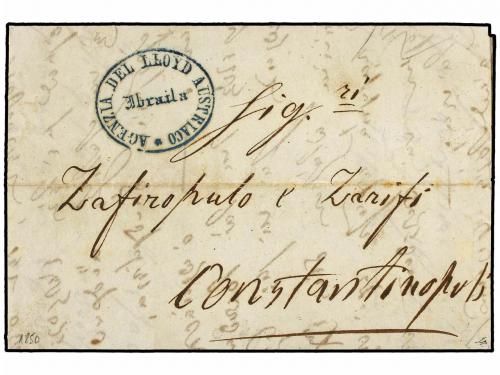 AGENZIA DEL LLOYD AUSTRIACO
Ibraila
Sig.ri
Zafiropulo e Zarifi
Constantinopoli
1850